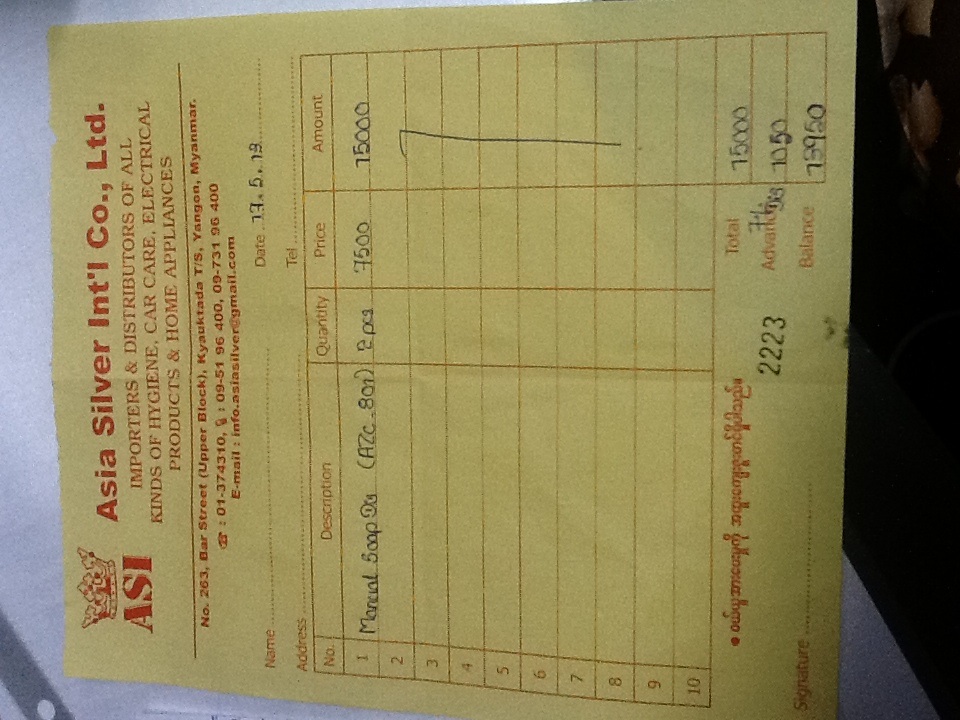 ASI
Asia Silver Int'l Co., Ltd.
IMPORTERS & DISTRIBUTORS OF ALL
KINDS OF HYGIENE, CAR CARE, ELECTRICAL
PRODUCTS & HOME APPLIANCES
No. 263, Bar Street (Upper Block), Kyauktada T/S, Yangon, Myanmar.
☎ : 01-374310, : 09-51 96 400, 09-731 96 400
E-mail : info.asiasilver@gmail.com
Name Date 17.5.13
Address Tel
No. Description Quantity Price Amount
1 Manual Soap Dis (AZC-801) 2 pcs 7500 15000
2
3
4
5
6
7
8
9
10
ဝယ်ယူအားပေးမှုကို အထူးကျေးဇူးတင်ရှိပါသည်။ Total 15000
2223 Advance 7% Dis 1050
Signature Balance 13950